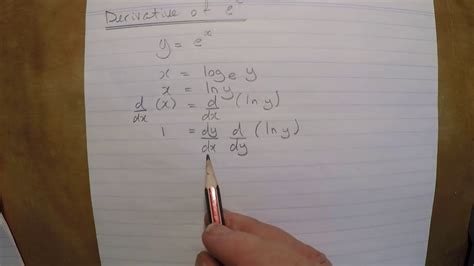 Derivative of eˣ
y = eˣ
x = logₑ y
x = ln y
d/dx (x) = d/dx (ln y)
1 = dy/dx d/dy (ln y)